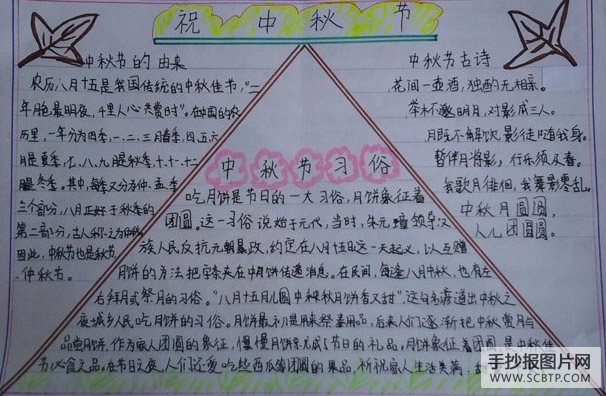 祝中秋节
中秋节的由来
农历八月十五是我国传统的中秋佳节,"二
年月色最明夜,千里人心共赏时"。在中国的农
历里,一年分为四季,一、二、三月春季,四、五、六
月是夏季,七、八、九月是秋季,十、十一、十二
月是冬季。其中,每季又分为仲、孟、季
三个部分,八月正好于秋季的
第二部分,古人称之为仲秋
因此,中秋节也是秋节
仲秋节。
中秋节古诗
花间一壶酒,独酌无相亲。
举杯邀明月,对影成三人。
月既不解饮,影徒随我身。
暂伴月将影,行乐须及春。
我歌月徘徊,我舞影零乱。
中秋月圆圆,
人儿团圆圆。
中秋节习俗
吃月饼是节日的一大习俗,月饼象征着
团圆。这一习俗说始于元代,当时,朱元璋领导汉
族人民反抗元朝暴政,约定在八月十五日这一天起义,以互赠
月饼的方法把字条夹在中月饼传递消息。在民间,每逢八月中秋,也有左
右拜月或祭月的习俗。"八月十五月儿圆中秋月饼香又甜",这句名谚道出中秋之
夜城乡人民吃月饼的习俗。月饼最初是用来祭奉用品,后来人们逐渐把中秋赏月与
品尝月饼,作为家人团圆的象征,慢慢月饼完成了节日的礼品。月饼象征着团圆是中秋佳
节必食之品,在节日之夜,人们还爱吃些西瓜等团圆的果品,祈祝家人生活美满、
手抄报图片网
WWW.SCBTP.COM